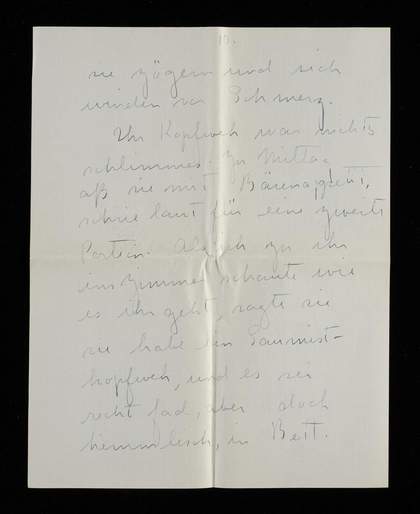 10.
sie zögern und sich
winden vor Schmerz.
Ihr Kopfweh war nichts
schlimmes. Zu Mittag
aß sie mit Bärenappetit,
schrie laut für eine zweite
Portion. Als ich zu ihr
ins Zimmer schaute wie
es ihr geht, sagte sie
sie habe ein Saumist-
kopfweh, und es sei
recht fad, aber doch
himmlisch, im Bett.